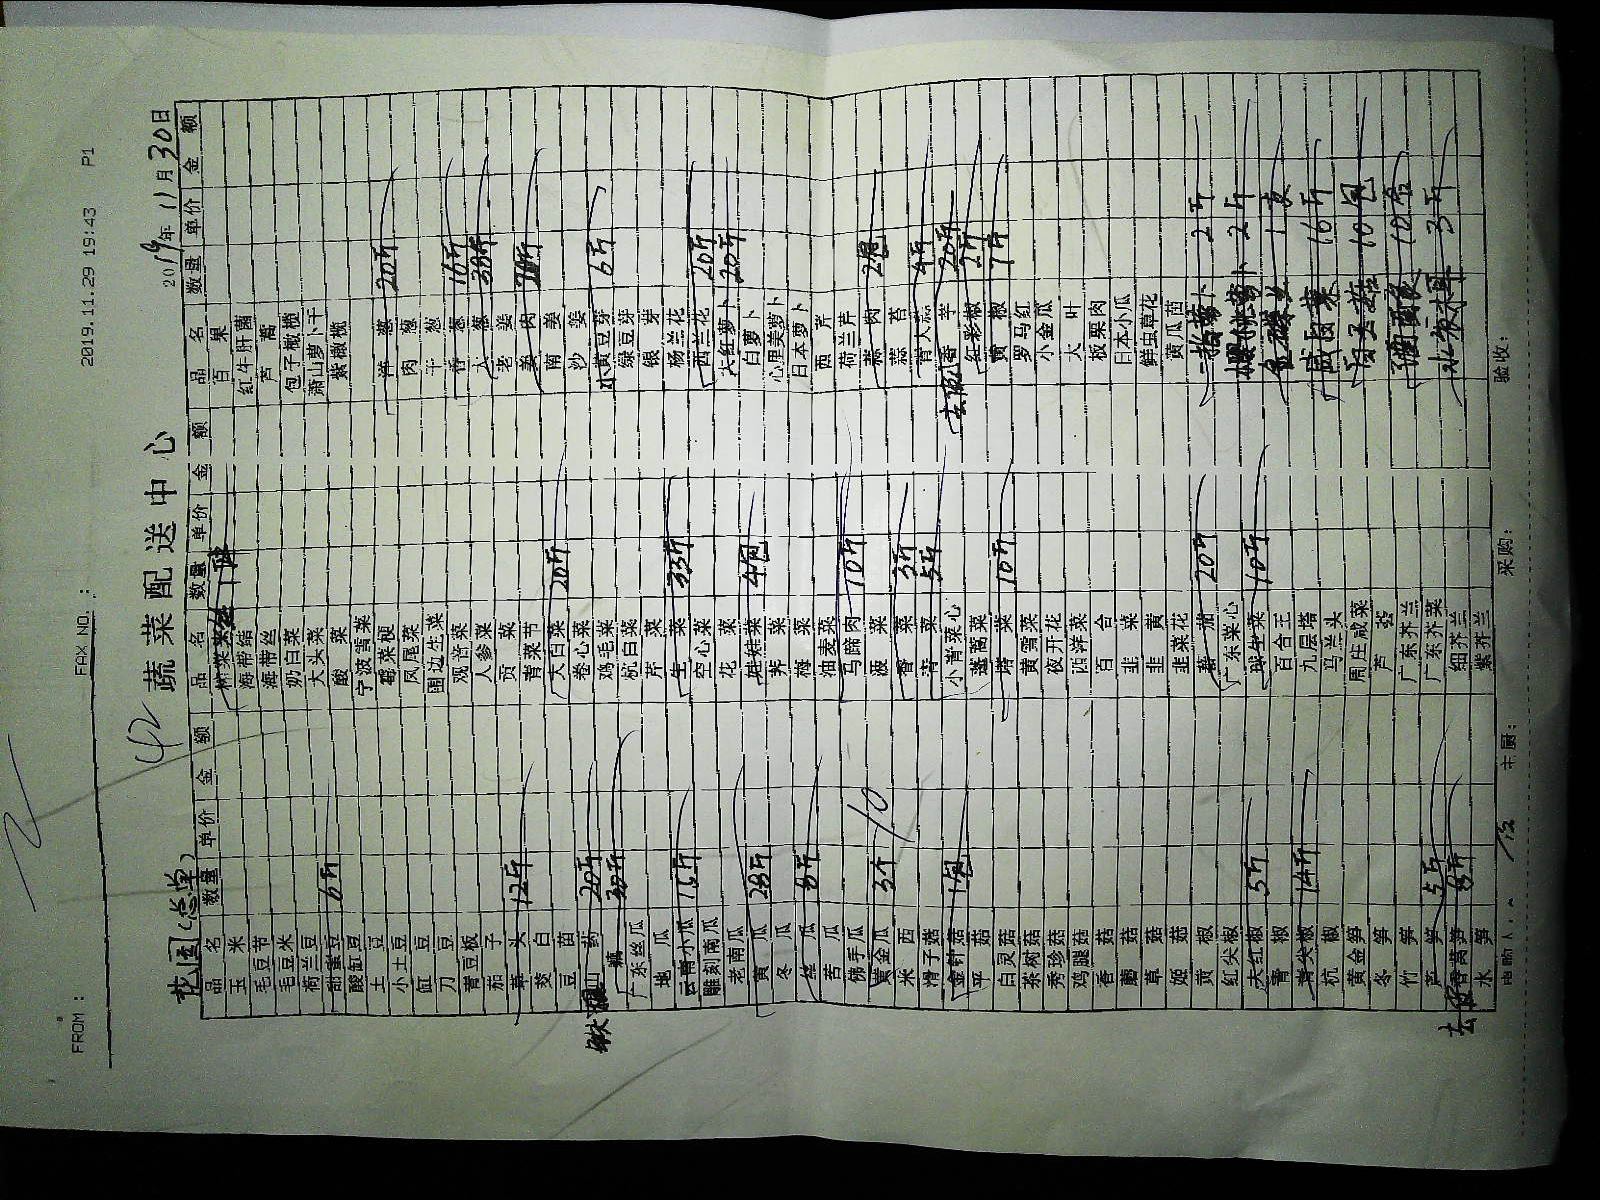 FROM :
FAX NO. :
2019.11.29 19:43 P1
42 蔬菜配送中心
花园(总单)
2019年11月30日
品名 数量 单价 金额
玉米
毛豆节
毛豆米
荷兰豆
甜蜜豆 6斤
酸豇豆
土豆
小土豆
豇豆
刀豆
青豆板
茄子
12斤
茭白
豆苗
山药 20斤
藕 30斤
广东丝瓜
地瓜
云南小瓜 15斤
雕刻南瓜
老南瓜
黄瓜 28斤
冬瓜
丝瓜 8斤
苦瓜
佛手瓜
黄金瓜 3个 10
米西
滑子菇
金针菇 1包
平菇
白灵菇
茶树菇
秀珍菇
鸡腿菇
香菇
蘑菇
草菇
姬菇
黄椒
红尖椒
大红椒 5斤
青椒
青尖椒 14斤
杭椒
黄金笋
冬笋
竹笋
芦笋 5斤
去皮香莴笋 8斤
水笋
品名 数量 单价 金额
榨菜丝
海带结
海带丝
奶白菜
大头菜
酸菜
宁波雪菜
霉菜梗
凤尾菜
围边生菜
观音菜
人参菜
贡菜
青菜节
大白菜 20斤
卷心菜
鸡毛菜
杭白菜
芹菜
生菜 33斤
空心菜
花菜
娃娃菜 4包
荠菜
梅菜
油麦菜
马蹄肉 10斤
菠菜
香菜 3斤
青菜 5斤
小青菜心
蓬蒿菜
塔菜 10斤
黄霉菜
夜开花
西洋菜
百合
韭菜
韭黄
韭菜花
番茄 20斤
广东菜心
球生菜 10斤
百合王
九层塔
马兰头
周庄咸菜
芦荟
广东芥兰
广东芥菜
细芥兰
紫芥兰
品名 数量 单价 金额
百果
红牛肝菌
芦蒿
包子橄榄
萧山萝卜干
紫橄榄
洋葱 20斤
肉葱
干葱
香葱 16斤
大葱 38斤
老姜
姜肉
南姜
沙姜
黄豆芽 6斤
绿豆芽
银芽
杨兰花
西兰花 20斤
大红萝卜 20斤
白萝卜
心里美萝卜
日本萝卜
西芹
荷兰芹
蒜肉 2包
蒜苔
4斤
去皮小香芋 20斤
红彩椒 2斤
黄椒 7斤
罗马红
小金瓜
大叶
板栗肉
日本小瓜
鲜虫草花
黄瓜面
2斤
樱桃萝卜 2斤
16斤
10包
10合
冰荷水果 3斤
主厨:
采购:
验收: